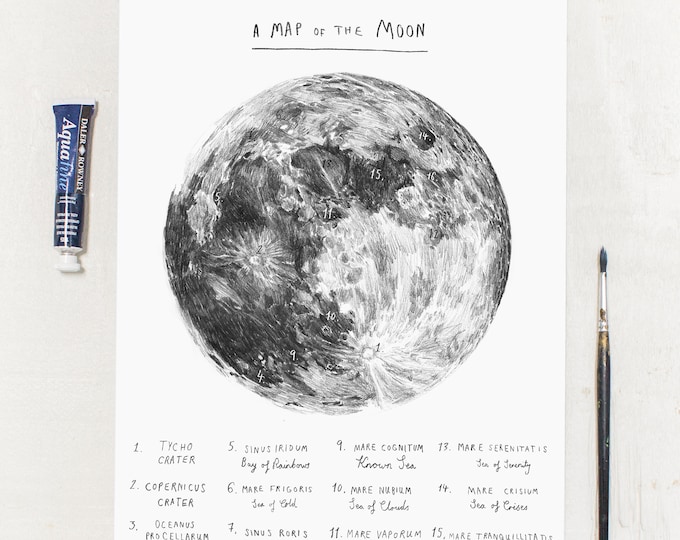 A MAP OF THE MOON
DALER ROWNEY
Aquafine
14.
13.
15.
16.
5.
11.
2.
10.
9.
1.
4.
1. TYCHO CRATER
5. SINUS IRIDUM
Bay of Rainbows
9. MARE COGNITUM
Known Sea
13. MARE SERENITATIS
Sea of Serenity
2. COPERNICUS CRATER
6. MARE FRIGORIS
Sea of Cold
10. MARE NUBIUM
Sea of Clouds
14. MARE CRISIUM
Sea of Crises
3. OCEANUS PROCELLARUM
7. SINUS RORIS
11. MARE VAPORUM
15. MARE TRANQUILLITATIS